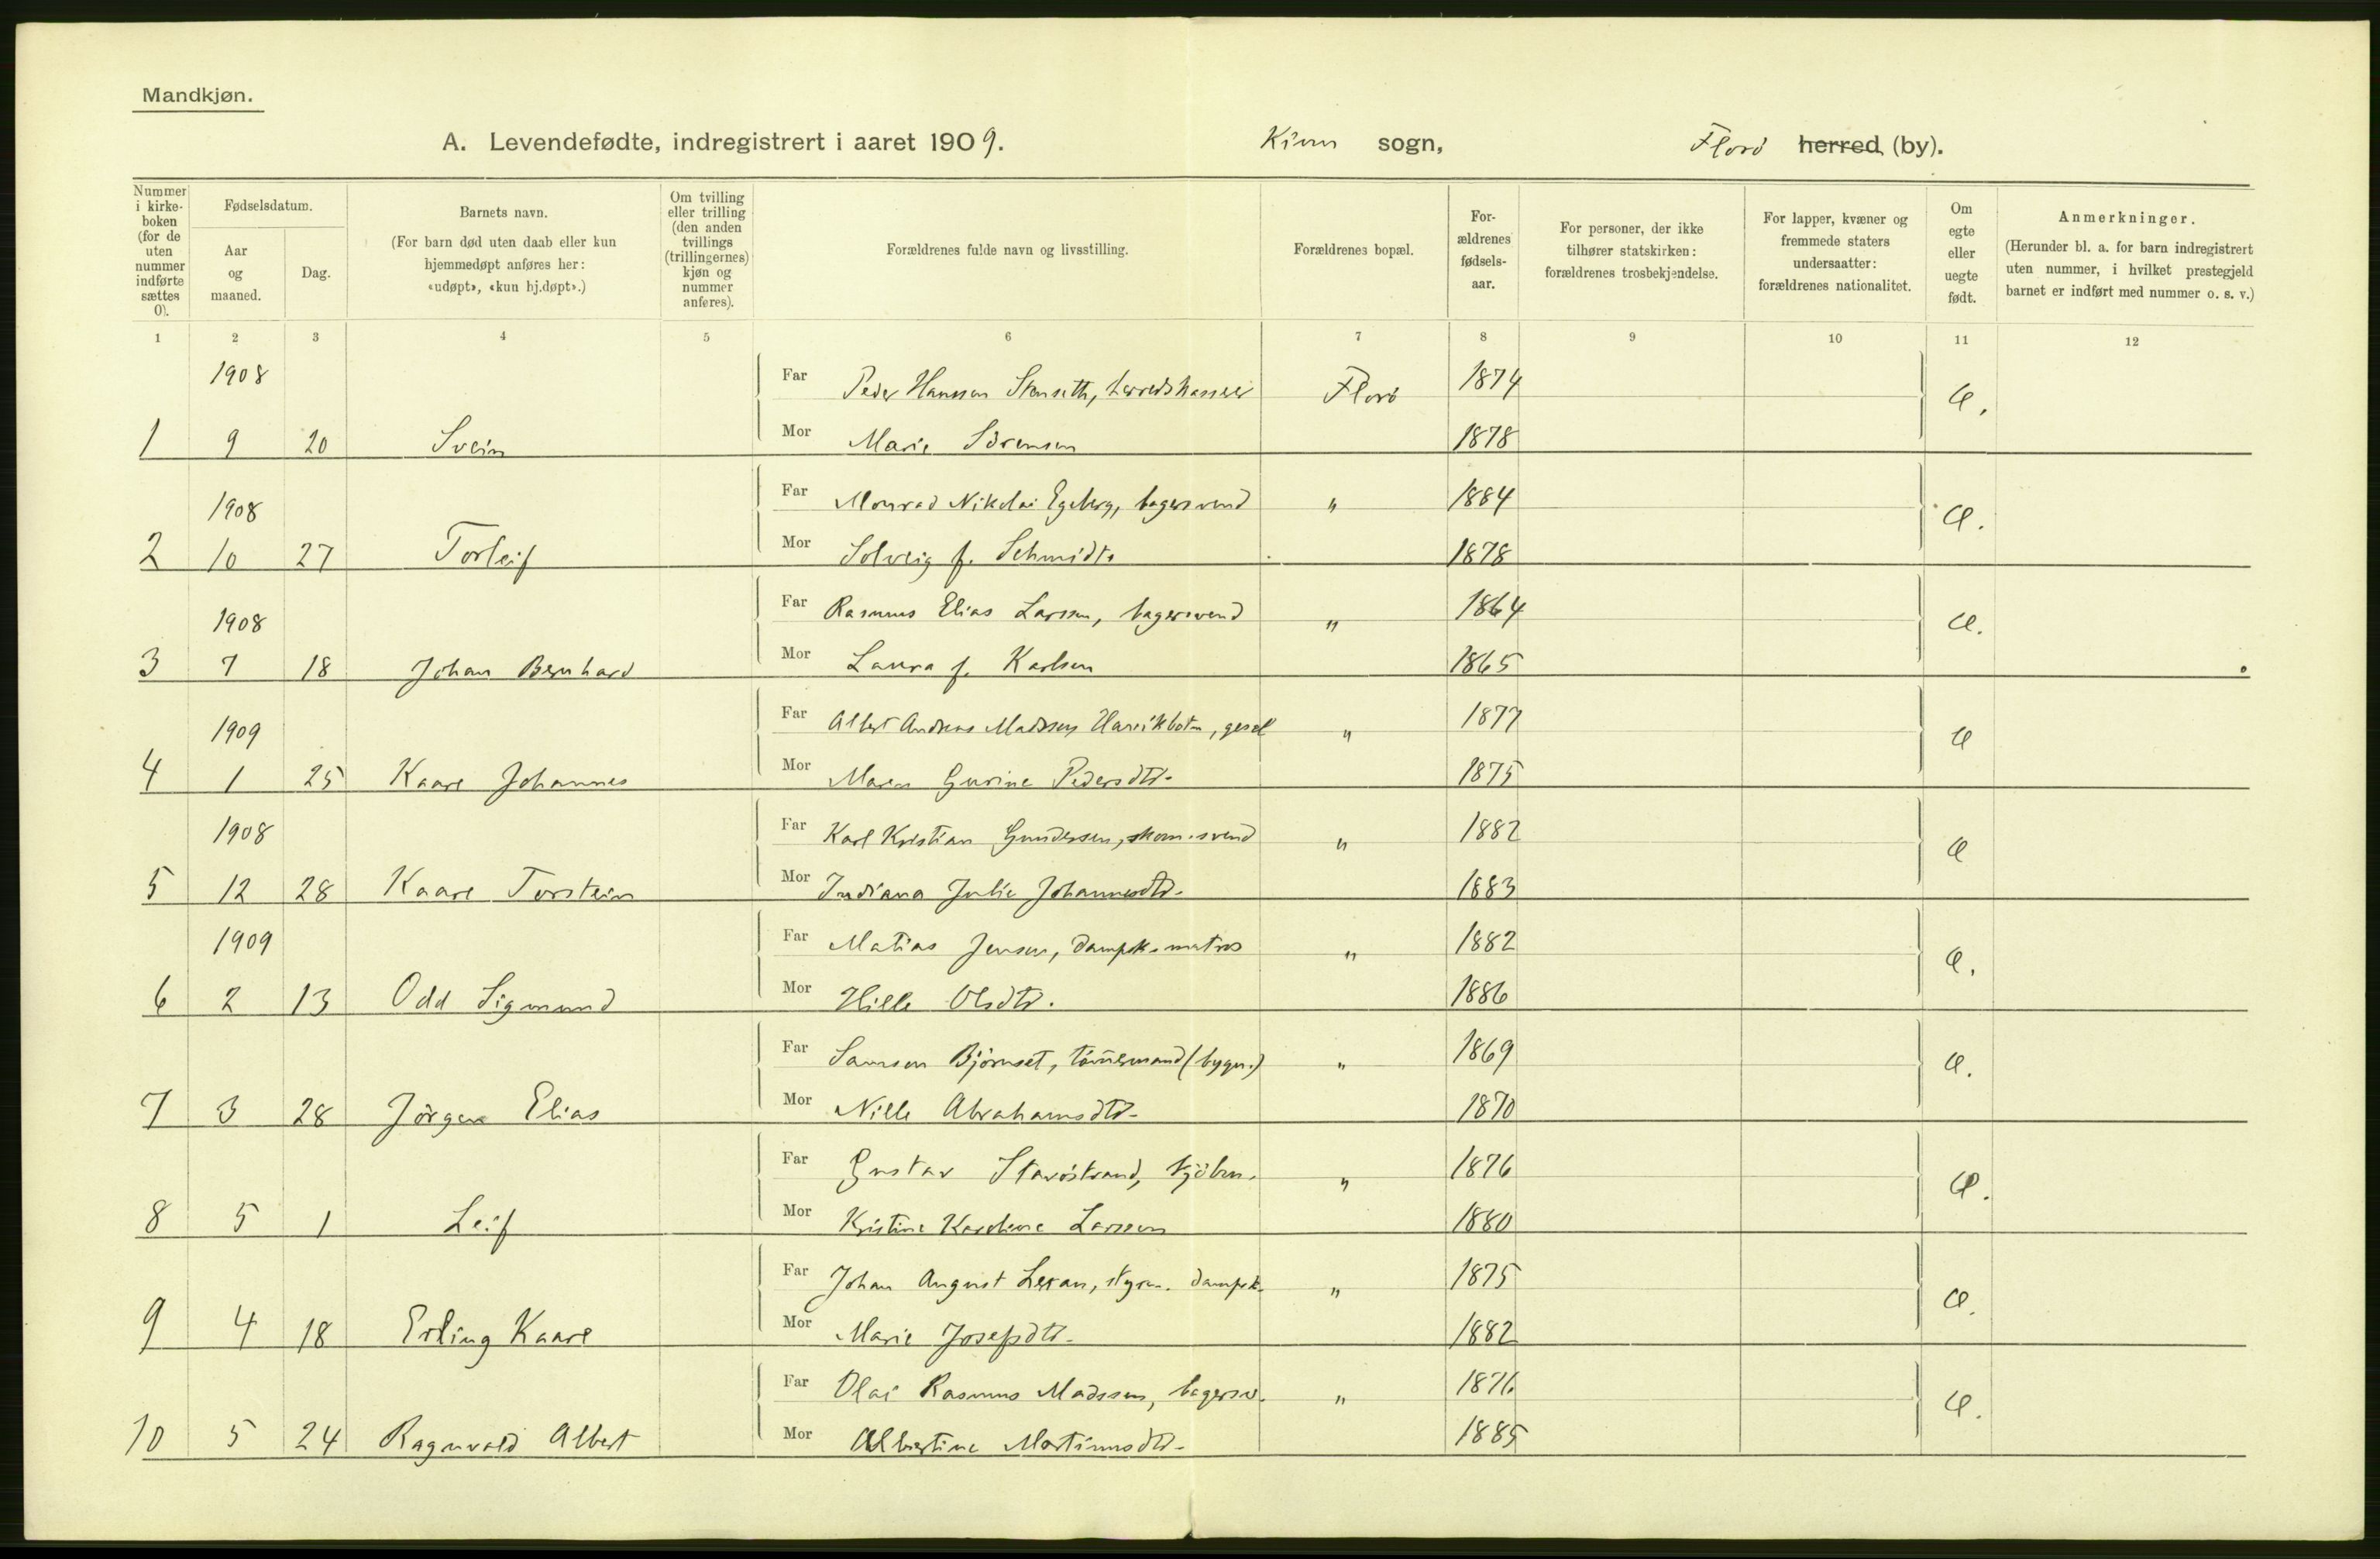 Mandkjøn.
A. Levendefødte, indregistrert i aaret 1909. Kinn sogn, Florö herred (by).
Nummer i kirkeboken (for de uten nummer indførte sættes 0).
Fødselsdatum.
Aar og maaned.
Dag.
Barnets navn.
(For barn død uten daab eller kun hjemmedøpt anføres her: «udøpt», «kun hj.døpt».)
Om tvilling eller trilling (den anden tvillings (trillingernes) kjøn og nummer anføres).
Forældrenes fulde navn og livsstilling.
Forældrenes bopæl.
Forældrenes fødselsaar.
For personer, der ikke tilhører statskirken: forældrenes trosbekjendelse.
For lapper, kvæner og fremmede staters undersaatter: forældrenes nationalitet.
Om egte eller uegte født.
Anmerkninger.
(Herunder bl. a. for barn indregistrert uten nummer, i hvilket prestegjeld barnet er indført med nummer o. s. v.)
1 2 3 4 5 6 7 8 9 10 11 12
1908 Far Peder Hanssen Stenseth, herredskasserer Florö 1874 e.
1 9 20 Svein Mor Marie Sörensen 1878
1908 Far Monrad Nikolai Egeberg, bagersvend " 1884 e.
2 10 27 Torleif Mor Solveig f. Schmidt 1878
1908 Far Rasmus Elias Larsen, bagersvend " 1864 e.
3 7 18 Johan Bernhard Mor Laura f. Karlsen 1865
1909 Far Albert Andreas Madssen, gesel " 1877 e
4 1 25 Kaare Johannes Mor Maren Gurine Pedersdtr. 1875
1908 Far Karl Kristian Gundersen, skom.svend " 1882 e
5 12 28 Kaare Torstein Mor Indiana Julie Johannesdtr. 1883
1909 Far Matias Jensen, dampsk.matros " 1882 e.
6 2 13 Odd Sigmund Mor Hille Olsdtr. 1886
Far Samson Björnset, tömmermand (bygn.) " 1869 e.
7 3 28 Jörgen Elias Mor Nille Abrahamsdtr. 1870
Far Gustav Stavöstrand, kjöbm. " 1876 e.
8 5 1 Leif Mor Kristine Karoline Larsen 1880
Far Johan August Lexau, styrm. dampsk. " 1875 e.
9 4 18 Erling Kaare Mor Marie Josefsdtr. 1882
Far Olai Rasmus Madssen, bagersv. " 1876 e.
10 5 24 Ragnvald Albert Mor Albertine Martinusdtr. 1885